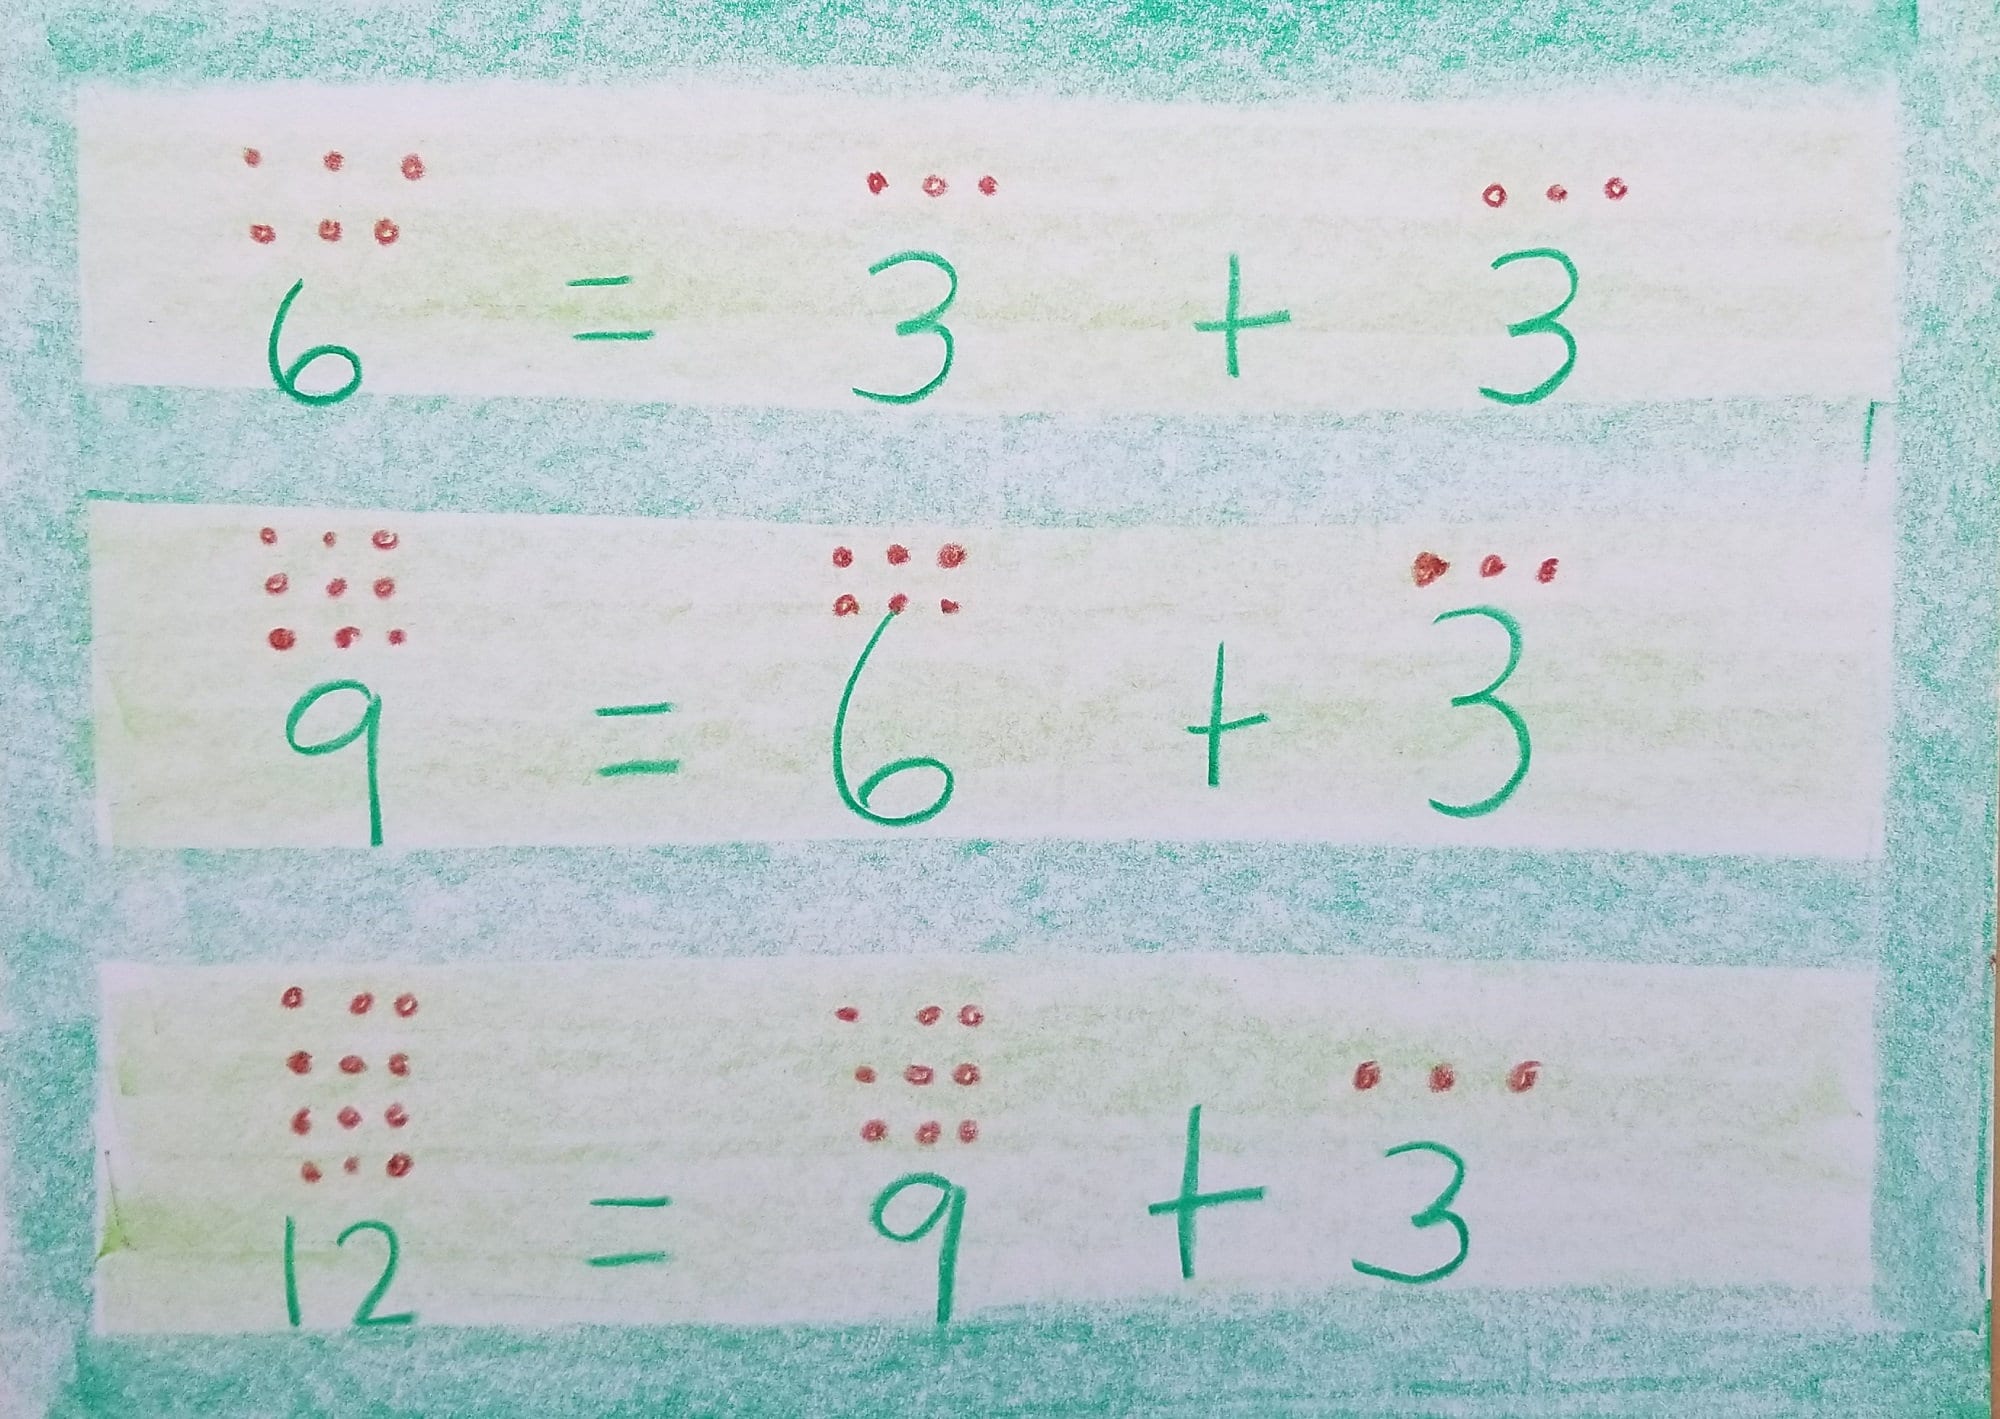 6 = 3 + 3
9 = 6 + 3
12 = 9 + 3